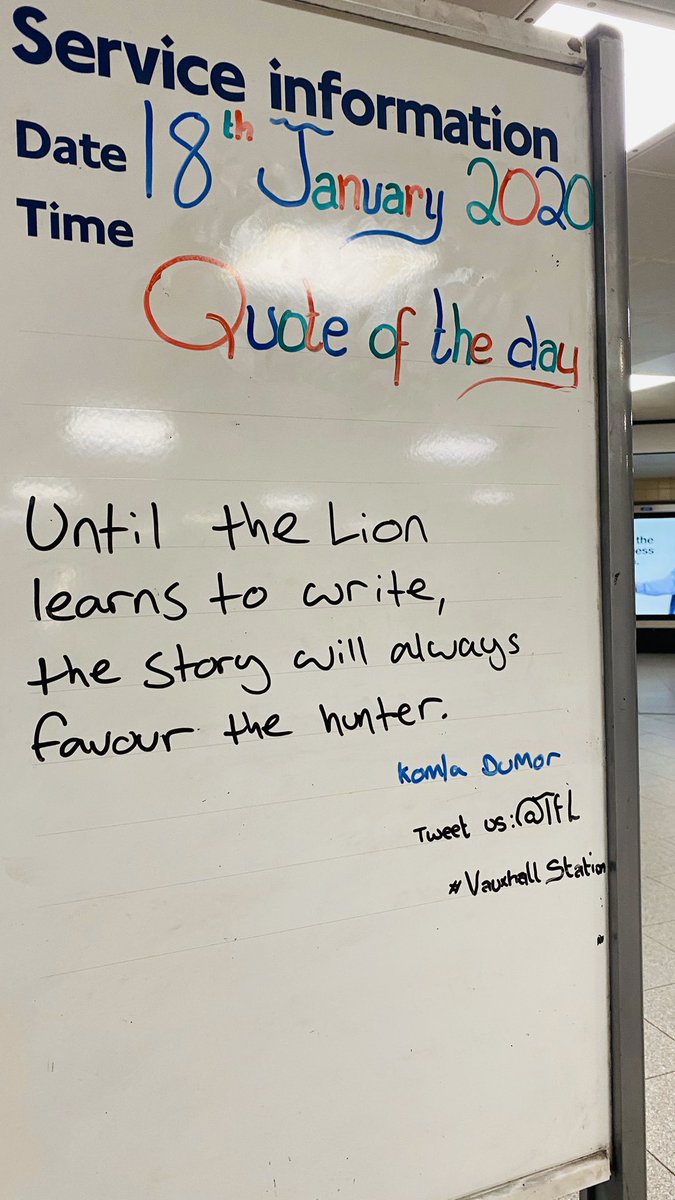 Service information
Date 18th January 2020
Time
Quote of the day
Until the Lion
learns to write,
the story will always
favour the hunter.
Komla Dumor
Tweet us:@TfL
#Vauxhall Station
the
ess